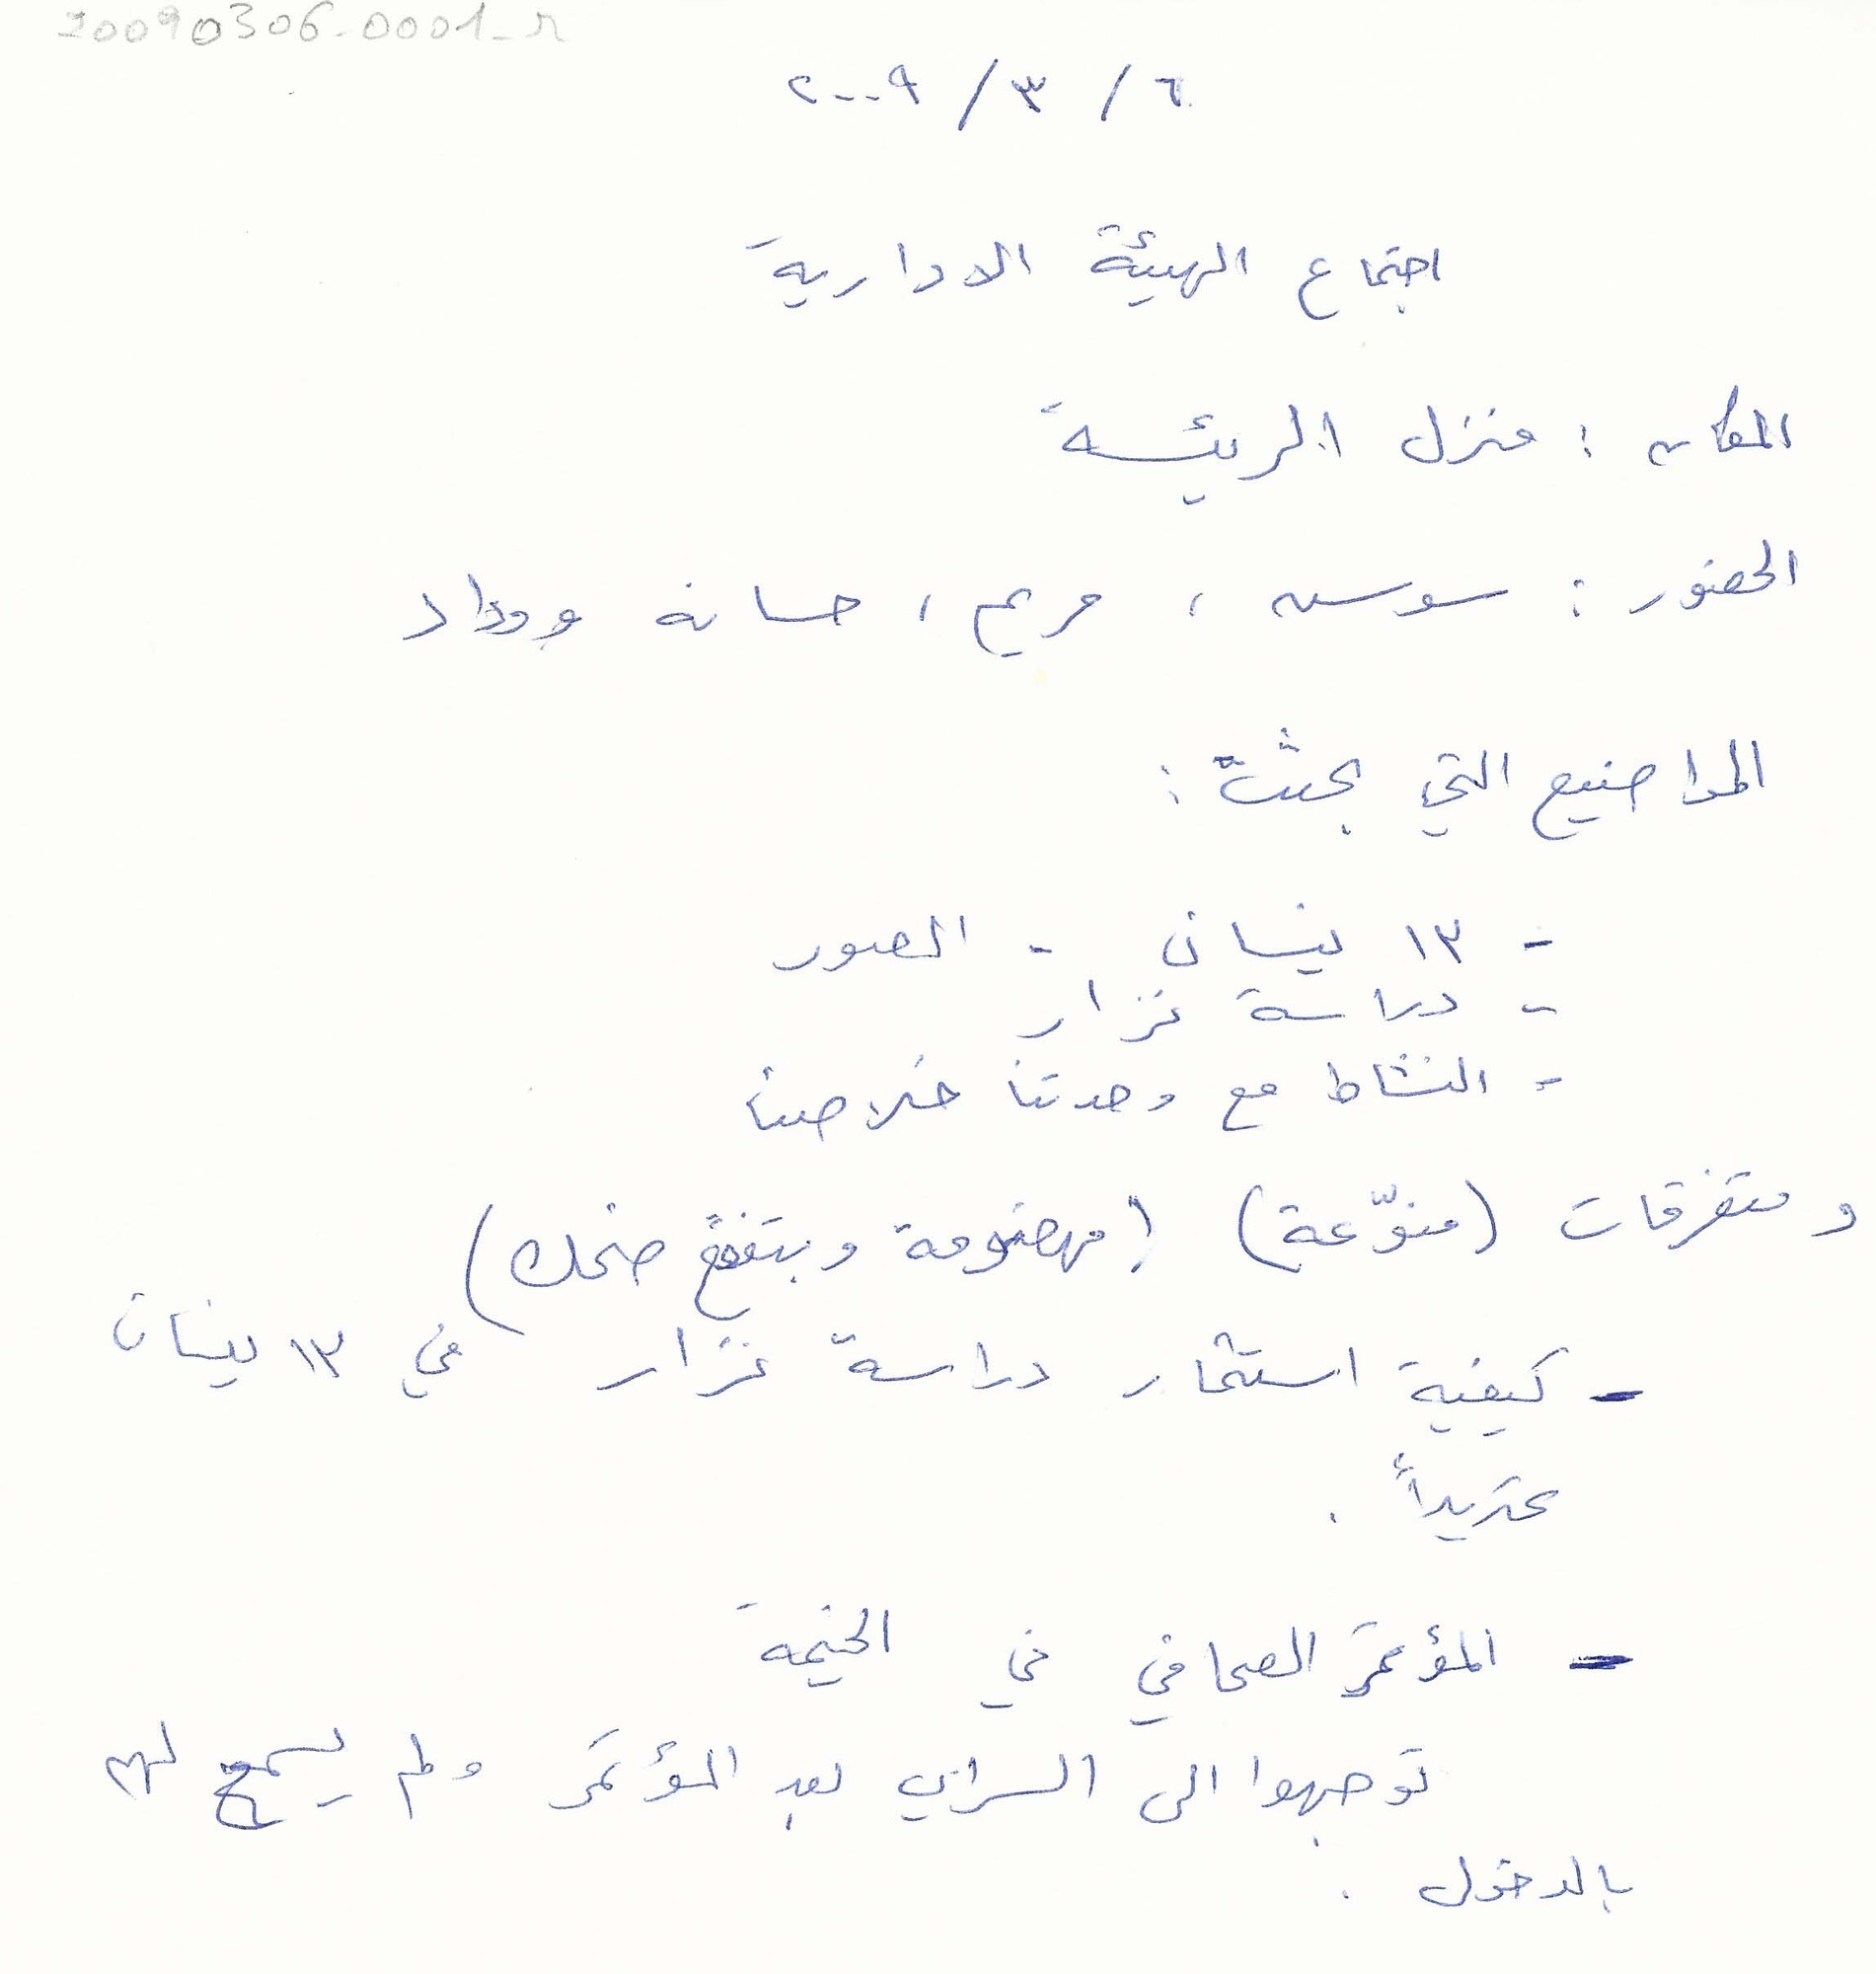 20090306-0001-r
٦ / ٣ / ٢٠٠٩
اجتماع الهيئة الادارية
المكان : منزل الرئيسة
الحضور : سوسن ، مريم ، حسانة ووداد
المواضيع التي بحثت :
- ١٣ نيسان - الصور
- دراسة نزار
- النشاط مع وحدتنا خلاصنا
و متفرقات (منوّعة) (مهضومة وبتفقع ضحك)
- كيفية استثمار دراسة نزار في ١٣ نيسان
تحديداً .
- المؤتمر الصحافي في الخيمة
توجهوا الى السراي بعد المؤتمر ولم يسمح لهم
بالدخول .